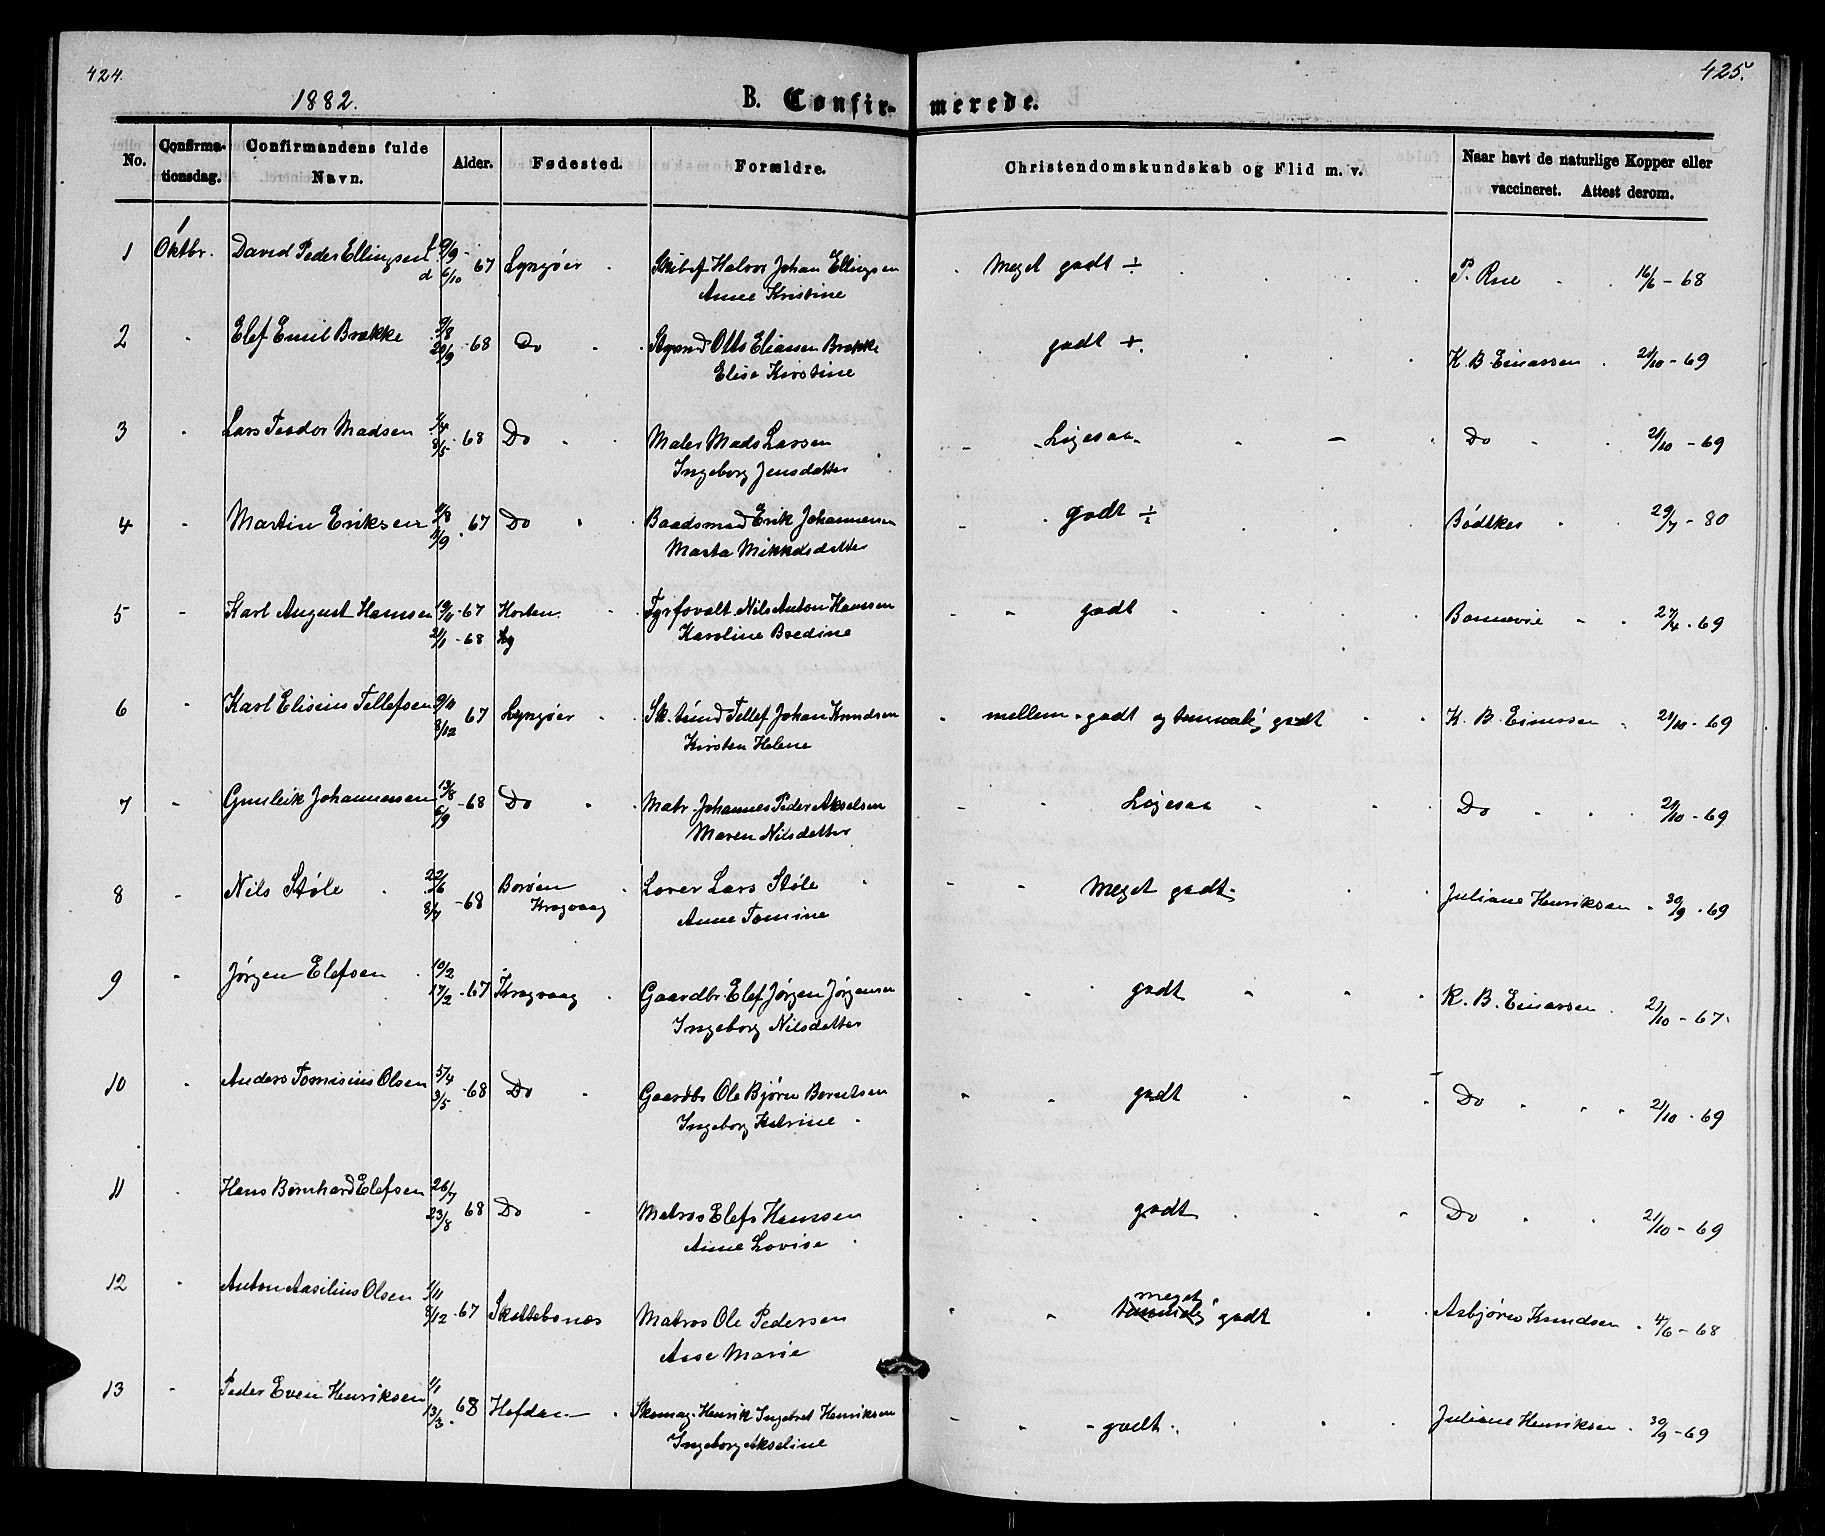 424.
425.
1882.
B. Confirmerede.
No.
Confirmationsdag.
Confirmandens fulde Navn.
Alder.
Fødested.
Forældre.
Christendomskundskab og Flid m. v.
Naar havt de naturlige Kopper eller vaccineret. Attest derom.
1 1 Oktbr. David Peder Ellingsen f 9/9 - d 6/10 67 Lyngøer Skibsf Halvor Johan Ellingsen Meget godt ÷ P. Rue 16/6 - 68
Anne Kristine
2 " Elef Emil Brække 9/8 20/9 - 68 Do Styrmd Otto Eliassen Brække godt +. K. B. Einarsen 21/10 - 69
Elise Kirstine
3 " Lars Teodor Madsen 1/4 8/5 - 68 Do Maler Mads Larsen - Ligesaa - Do 21/10 - 69
Ingeborg Jensdatter
4 " Martin Eriksen 4/8 11/9 - 67 Do Baadsmd Erik Johannesen godt ÷ Bødtker 29/7 - 80
Marta Mikkelsdatter
5 " Karl August Hanssen 19/11 - 67 Horten Fyrforvalt. Nils Anton Hanssen godt Bonnevie 27/4 - 69
21/1 - 68 Lg Karoline Bredine
6 " Karl Elisius Tellefsen 9/11 3/12 67 Lyngøer Sk. tømd Tellef Johan Knudsen mellem godt og temmelig godt K. B. Einersen 21/10 - 69
Kirsten Helene
7 " Gunleik Johannessen 13/8 6/9 - 68 Do Matr. Johannes Peder Akselsen Ligesaa Do 21/10 - 69
Maren Nilsdatter
8 " Nils Støle 22/6 8/7 - 68 Borøen Kragvaag Lærer Lars Støle Meget godt Juliane Henriksen 30/9 - 69
Anne Tomine
9 " Jørgen Elefsen 10/2 17/2 - 67 Kragvaag Gaardbr. Elef Jørgen Jørgensen godt K. B. Einarsen 21/10 - 67
Ingeborg Nilsdatter
10 " Anders Tomisius Olsen 5/4 3/5 - 68 Do Gaardbr Ole Bjørn Berntsen godt Do 21/10 - 69
Ingeborg Katrine
11 " Hans Bernhard Elefsen 26/7 23/8 68 Do Matros Elef Hanssen godt Do 21/10 - 69
Anne Lovise
12 " Anton Aasilius Olsen 1/11 8/12 - 67 Skottebonæs Matros Ole Pedersen meget temmelig godt Asbjørn Knudsen 4/6 - 68
Asse Marie
13 " Peder Even Henriksen 1/1 13/3 - 68 Hefden Skomag. Henrik Ingebret Henriksen - godt Juliane Henriksen 30/9 - 69
Ingeborg Akseline